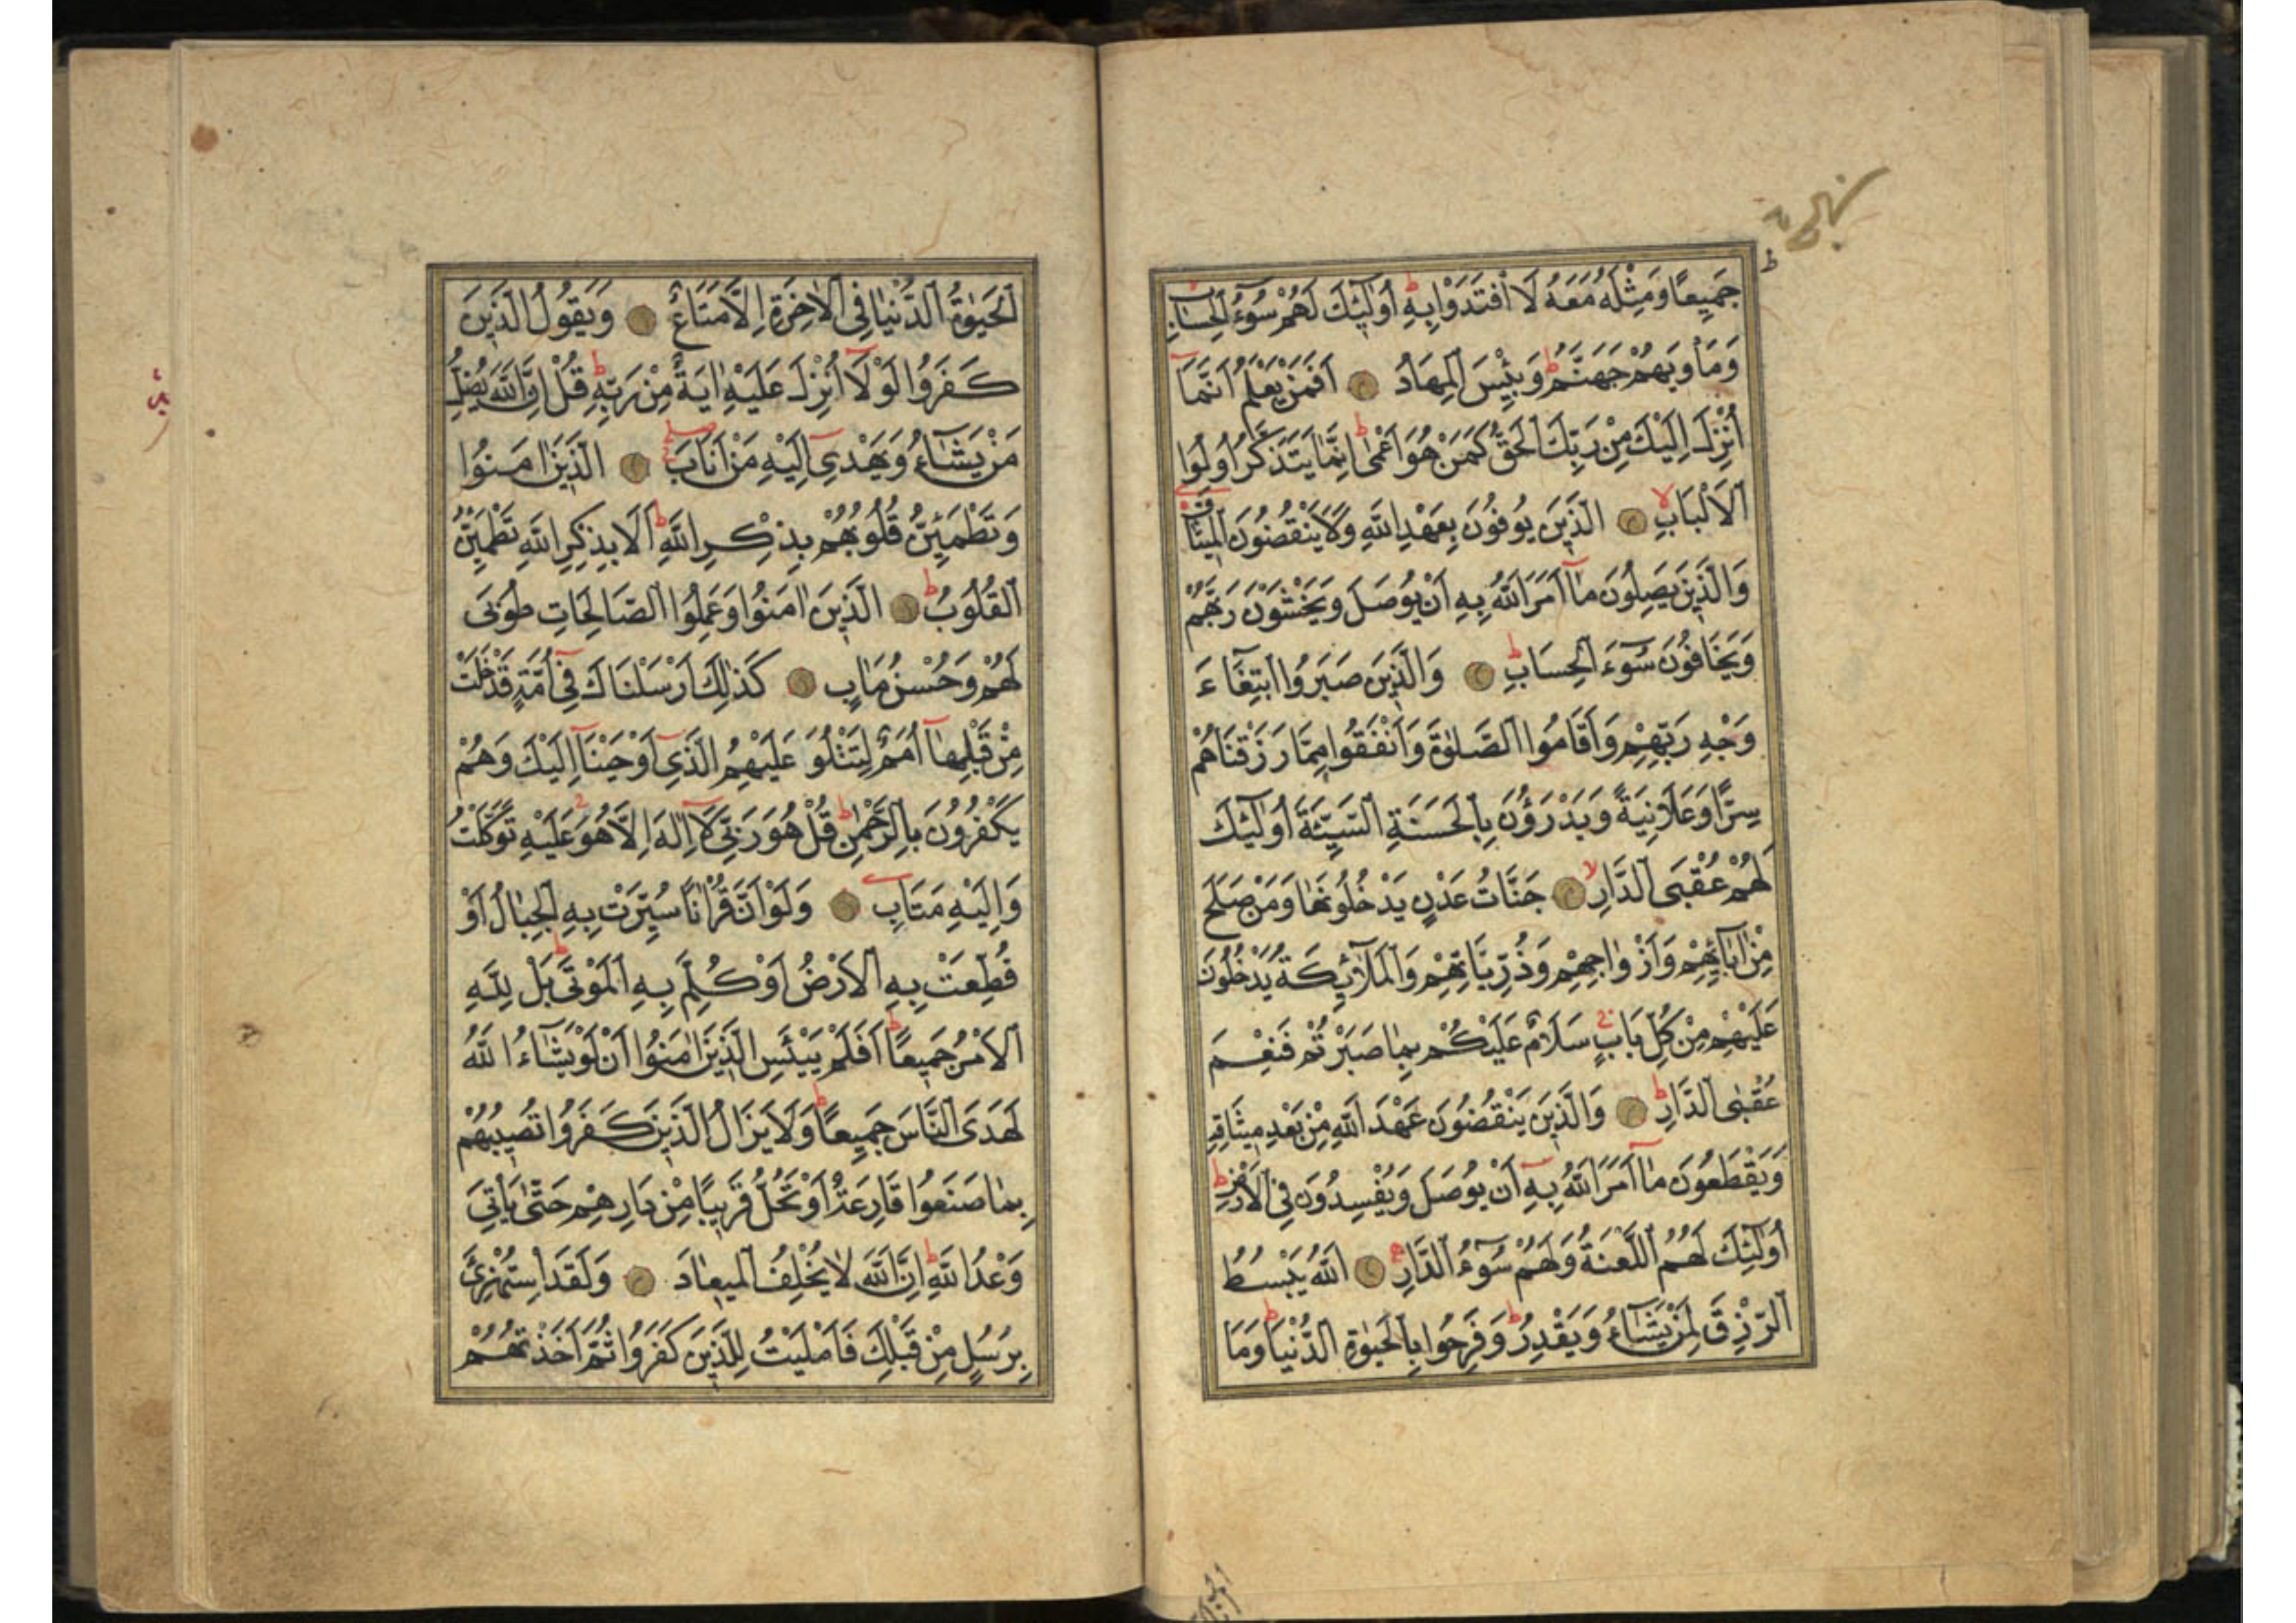 جَمِيعًا وَمِثْلَهُ مَعَهُ لَا افْتَدَوْا بِهِ أُولٰئِكَ لَهُمْ سُوءُ الْحِسَابِ
وَمَأْوٰيهُمْ جَهَنَّمُ وَبِئْسَ الْمِهَادُ أَفَمَنْ يَعْلَمُ أَنَّمَا
أُنْزِلَ إِلَيْكَ مِنْ رَبِّكَ الْحَقُّ كَمَنْ هُوَ أَعْمٰى إِنَّمَا يَتَذَكَّرُ أُولُوا
الْأَلْبَابِ الَّذِينَ يُوفُونَ بِعَهْدِ اللَّهِ وَلَا يَنْقُضُونَ الْمِيثَاقَ
وَالَّذِينَ يَصِلُونَ مَا أَمَرَ اللَّهُ بِهِ أَنْ يُوصَلَ وَيَخْشَوْنَ رَبَّهُمْ
وَيَخَافُونَ سُوءَ الْحِسَابِ وَالَّذِينَ صَبَرُوا ابْتِغَاءَ
وَجْهِ رَبِّهِمْ وَأَقَامُوا الصَّلٰوةَ وَأَنْفَقُوا مِمَّا رَزَقْنَاهُمْ
سِرًّا وَعَلَانِيَةً وَيَدْرَؤُنَ بِالْحَسَنَةِ السَّيِّئَةَ أُولٰئِكَ
لَهُمْ عُقْبَى الدَّارِ جَنَّاتُ عَدْنٍ يَدْخُلُونَهَا وَمَنْ صَلَحَ
مِنْ اٰبَائِهِمْ وَأَزْوَاجِهِمْ وَذُرِّيَّاتِهِمْ وَالْمَلٰائِكَةُ يَدْخُلُونَ
عَلَيْهِمْ مِنْ كُلِّ بَابٍ سَلَامٌ عَلَيْكُمْ بِمَا صَبَرْتُمْ فَنِعْمَ
عُقْبَى الدَّارِ وَالَّذِينَ يَنْقُضُونَ عَهْدَ اللَّهِ مِنْ بَعْدِ مِيثَاقِهِ
وَيَقْطَعُونَ مَا أَمَرَ اللَّهُ بِهِ أَنْ يُوصَلَ وَيُفْسِدُونَ فِي الْأَرْضِ
أُولٰئِكَ لَهُمُ اللَّعْنَةُ وَلَهُمْ سُوءُ الدَّارِ اللَّهُ يَبْسُطُ
الرِّزْقَ لِمَنْ يَشَاءُ وَيَقْدِرُ وَفَرِحُوا بِالْحَيٰوةِ الدُّنْيَا وَمَا
الْحَيٰوةُ الدُّنْيَا فِي الْاٰخِرَةِ إِلَّا مَتَاعٌ وَيَقُولُ الَّذِينَ
كَفَرُوا لَوْلَا أُنْزِلَ عَلَيْهِ اٰيَةٌ مِنْ رَبِّهِ قُلْ إِنَّ اللَّهَ يُضِلُّ
مَنْ يَشَاءُ وَيَهْدِي إِلَيْهِ مَنْ أَنَابَ الَّذِينَ اٰمَنُوا
وَتَطْمَئِنُّ قُلُوبُهُمْ بِذِكْرِ اللَّهِ أَلَا بِذِكْرِ اللَّهِ تَطْمَئِنُّ
الْقُلُوبُ الَّذِينَ اٰمَنُوا وَعَمِلُوا الصَّالِحَاتِ طُوبَى
لَهُمْ وَحُسْنُ مَاٰبٍ كَذٰلِكَ أَرْسَلْنَاكَ فِي أُمَّةٍ قَدْ خَلَتْ
مِنْ قَبْلِهَا أُمَمٌ لِتَتْلُوَ عَلَيْهِمُ الَّذِي أَوْحَيْنَا إِلَيْكَ وَهُمْ
يَكْفُرُونَ بِالرَّحْمٰنِ قُلْ هُوَ رَبِّي لَا إِلٰهَ إِلَّا هُوَ عَلَيْهِ تَوَكَّلْتُ
وَإِلَيْهِ مَتَابِ وَلَوْ أَنَّ قُرْاٰنًا سُيِّرَتْ بِهِ الْجِبَالُ أَوْ
قُطِّعَتْ بِهِ الْأَرْضُ أَوْ كُلِّمَ بِهِ الْمَوْتَى بَلْ لِلَّهِ
الْأَمْرُ جَمِيعًا أَفَلَمْ يَيْئَسِ الَّذِينَ اٰمَنُوا أَنْ لَوْ يَشَاءُ اللَّهُ
لَهَدَى النَّاسَ جَمِيعًا وَلَا يَزَالُ الَّذِينَ كَفَرُوا تُصِيبُهُمْ
بِمَا صَنَعُوا قَارِعَةٌ أَوْ تَحُلُّ قَرِيبًا مِنْ دَارِهِمْ حَتّٰى يَأْتِيَ
وَعْدُ اللَّهِ إِنَّ اللَّهَ لَا يُخْلِفُ الْمِيعَادَ وَلَقَدِ اسْتُهْزِئَ
بِرُسُلٍ مِنْ قَبْلِكَ فَأَمْلَيْتُ لِلَّذِينَ كَفَرُوا ثُمَّ أَخَذْتُهُمْ